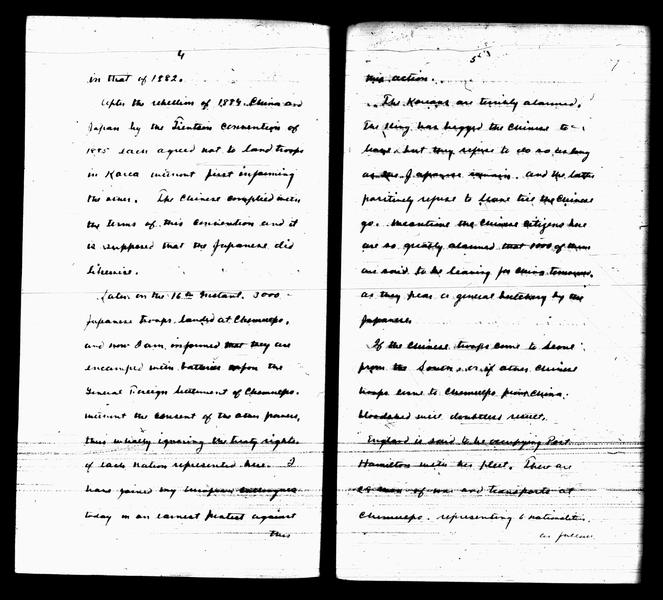 4
in that of 1882.
After the rebellion of 1884. China and
Japan by the Tientsin Convention of
1885 each agreed not to land troops
in Korea without first informing
the other. The Chinese complied with
the terms of this convention and it
is supposed that the Japanese did
likewise.
Later on the 16th Instant. 3000
Japanese troops landed at Chemulpo,
and now I am informed that they are
encamped with batteries upon the
General Foreign Settlement of Chemulpo.
without the consent of the other powers,
thus wholly ignoring the treaty rights
of each nation represented here. I
have joined my European colleagues
today in an earnest protest against
this
5
this action.
The Koreans are terribly alarmed.
The King has begged the Chinese to
leave, but they refuse to do so as long
as the Japanese remain. and the latter
positively refuse to leave till the Chinese
go. Meantime the Chinese citizens here
are so greatly alarmed that 1000 of them
are said to be leaving for China tomorrow,
as they fear a general butchery by the
Japanese.
If the Chinese troops come to Seoul
from the South, or if other Chinese
troops come to Chemulpo from China.
bloodshed will doubtless result.
England is said to be occupying Port
Hamilton with her fleet. There are
men of war and transports at
Chemulpo. representing 6 nationalities.
as follows